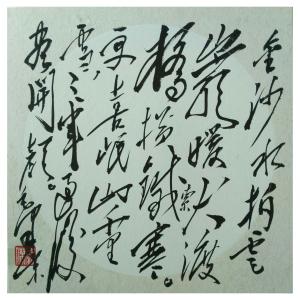 金沙水拍雲
崖暖大渡
橋橫鐵索寒。
更喜岷山千里
雪，三軍過後
盡開顏。